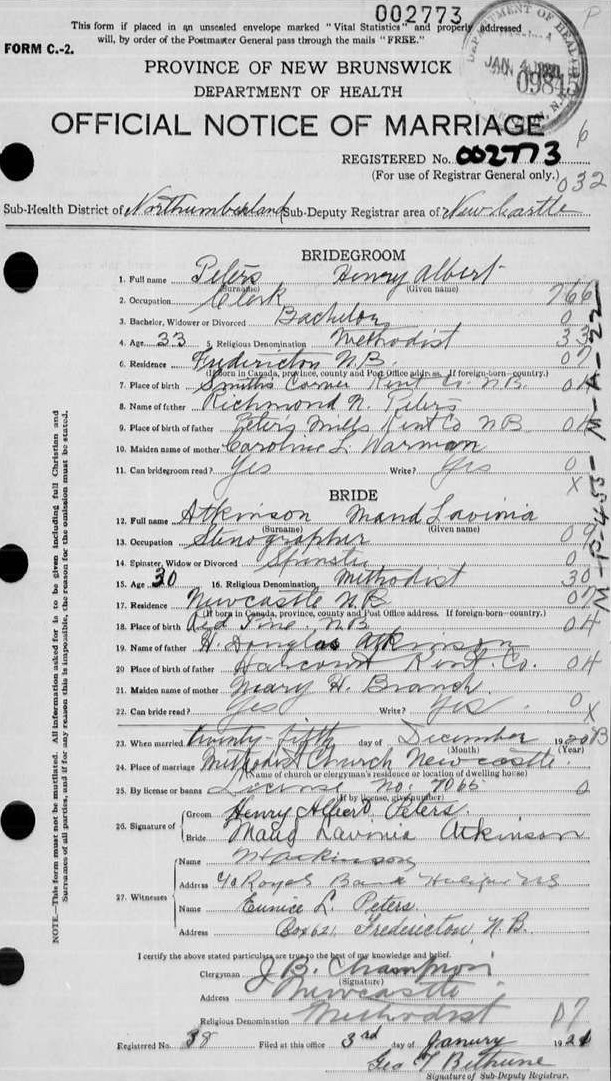 002773
This form if placed in an unsealed envelope marked "Vital Statistics" and properly addressed
will, by order of the Postmaster General pass through the mails "FREE."
FORM C.-2.
DEPARTMENT OF HEALTH
JAN
09845
P
PROVINCE OF NEW BRUNSWICK
DEPARTMENT OF HEALTH
OFFICIAL NOTICE OF MARRIAGE
6
REGISTERED No. 002773
(For use of Registrar General only.)
032
Sub-Health District of Northumberland Sub-Deputy Registrar area of Newcastle
BRIDEGROOM
1. Full name Peters Henry Albert
(Surname) (Given name)
2. Occupation Clerk 766
3. Bachelor, Widower or Divorced Bachelor 0
4. Age 33 5. Religious Denomination Methodist 33
6. Residence Fredericton N.B. 07
(If born in Canada, province, county and Post Office address. If foreign-born—country.)
7. Place of birth Smiths Corner Kent Co. N.B. 04
8. Name of father Richmond N. Peters
9. Place of birth of father Peters Mills Kent Co NB 04
10. Maiden name of mother Caroline L. Warman
11. Can bridegroom read? Yes Write? Yes 0
X
BRIDE
12. Full name Atkinson Maud Lavinia
(Surname) (Given name)
13. Occupation Stenographer 09
14. Spinster, Widow or Divorced Spinster 0
15. Age 30 16. Religious Denomination Methodist 30
17. Residence Newcastle N.B. 07
(If born in Canada, province, county and Post Office address. If foreign-born—country.)
18. Place of birth Red Pine, N.B. 04
19. Name of father H. Douglas Atkinson
20. Place of birth of father Harcourt Kent. Co. 04
21. Maiden name of mother Mary H. Branch
22. Can bride read? Yes Write? Yes. 0
X
23. When married twenty-fifth day of December 1920 B
(Month) (Year)
24. Place of marriage Methodist Church Newcastle
(Name of church or clergyman's residence or location of dwelling house)
25. By license or banns License No. 7066 0
(If by license, give number)
26. Signature of Groom Henry Albert Peters.
Bride Maud Lavinia Atkinson
27. Witnesses
Name Atkinson
Address c/o Royal Bank Halifax NS
Name Eunice L. Peters.
Address Box 621, Fredericton, N.B.
I certify the above stated particulars are true to the best of my knowledge and belief.
Clergyman J. B. Champion
(Signature)
Address Newcastle
Religious Denomination Methodist 07
Registered No. 38 Filed at this office 3rd day of Janury 1921
Geo T Bethune
Signature of Sub-Deputy Registrar.
NOTE—This form must not be mutilated. All information asked for is to be given including full Christian and
Surnames of all parties, and if for any reason this is impossible, the reason for the omission must be stated.